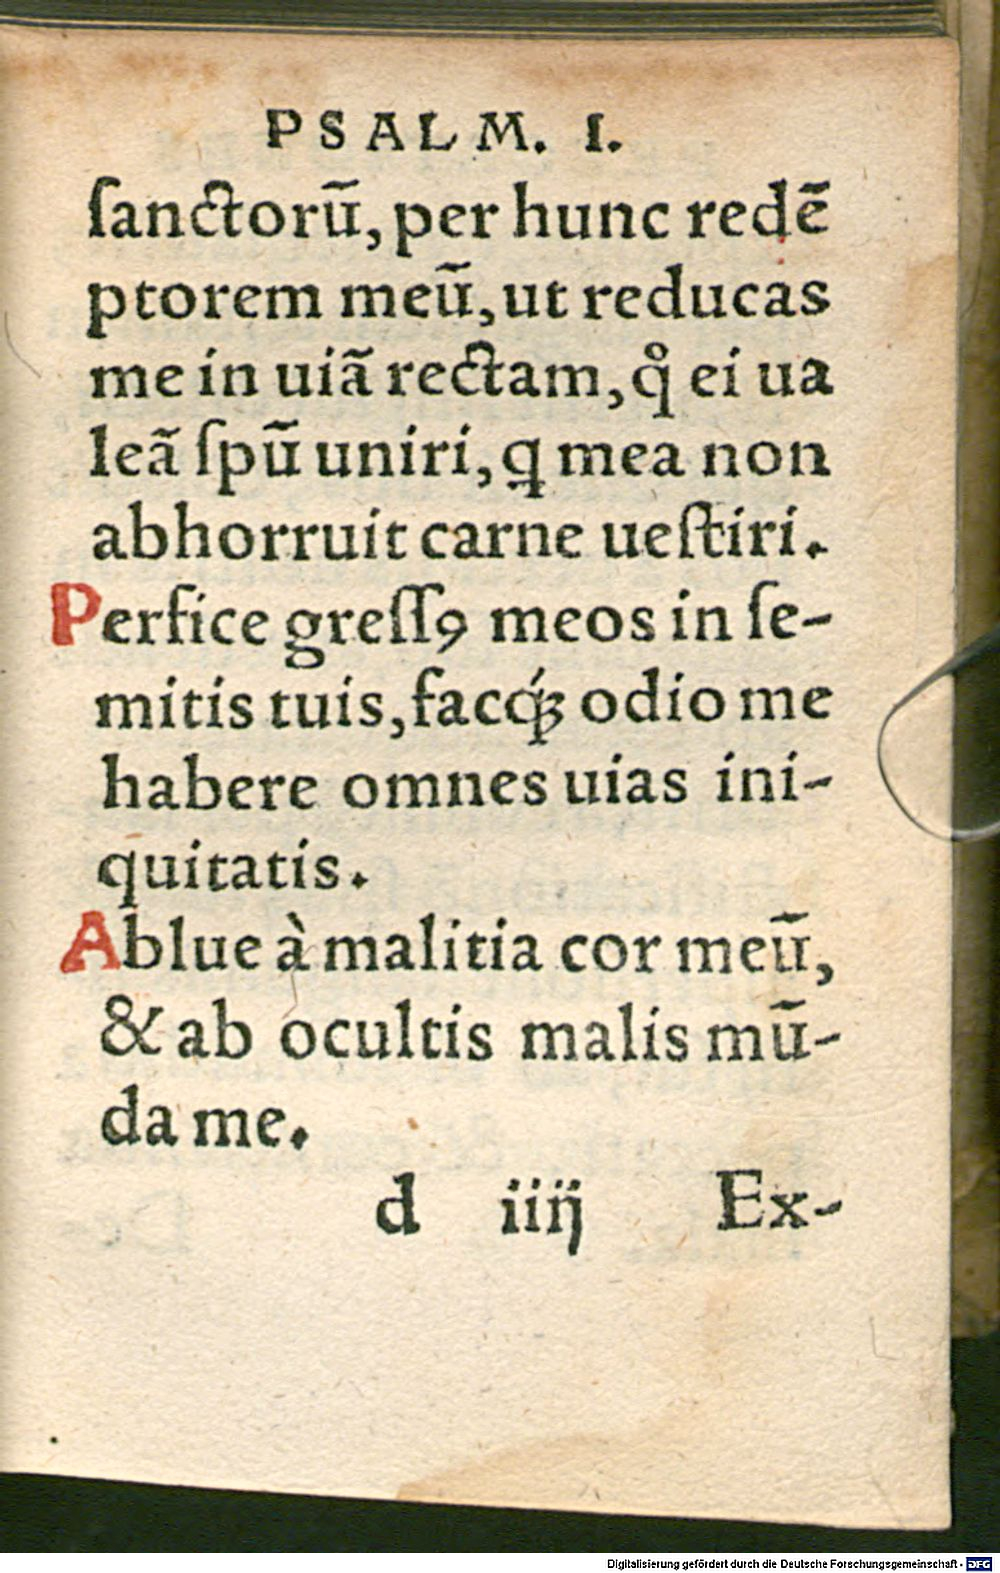 PSALM. I.
ſanctorū, per hunc redē
ptorem meū, ut reducas
me in uiā rectam, qͦ ei ua
leā ſpū uniri, ꝗ mea non
abhorruit carne ueſtiri.
Perfice greſſꝰ meos in ſe-
mitis tuis, facq́ꝫ odio me
habere omnes uias ini-
quitatis.
Ablue à malitia cor meū,
& ab ocultis malis mū-
da me.
d iiij Ex-
Digitalisierung gefördert durch die Deutsche Forschungsgemeinschaft - DFG